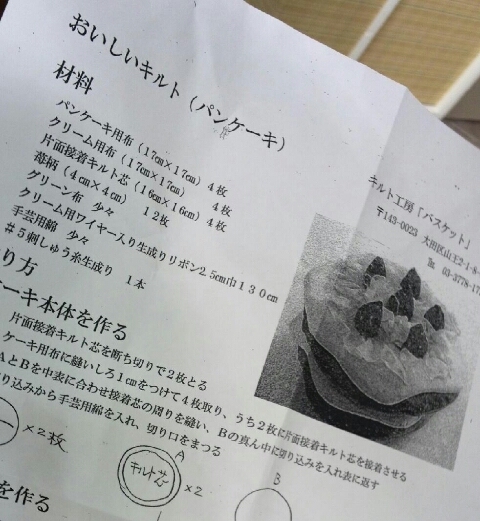 おいしいキルト（パンケーキ）
材料
パンケーキ用布（17㎝×17㎝）4枚
クリーム用布（17㎝×17㎝） 4枚
片面接着キルト芯（16㎝×16㎝）4枚
苺柄（4㎝×4㎝） 12枚
グリーン布 少々
クリーム用ワイヤー入り生成りリボン2.5㎝巾130㎝
手芸用綿 少々
#5刺しゅう糸生成り 1本
り方
ーキ本体を作る
片面接着キルト芯を断ち切りで2枚とる
ケーキ用布に縫いしろ1㎝をつけて4枚取り、うち2枚に片面接着キルト芯を接着させる
AとBを中表に合わせ接着芯の周りを縫い、Bの真ん中に切り込みを入れ表に返す
り込みから手芸用綿を入れ、切り口をまつる
×2枚
A
キルト芯
×2
B
を作る
キルト工房「バスケット」
〒143-0023 大田区山王2-1-8-
℡ 03-3778-17